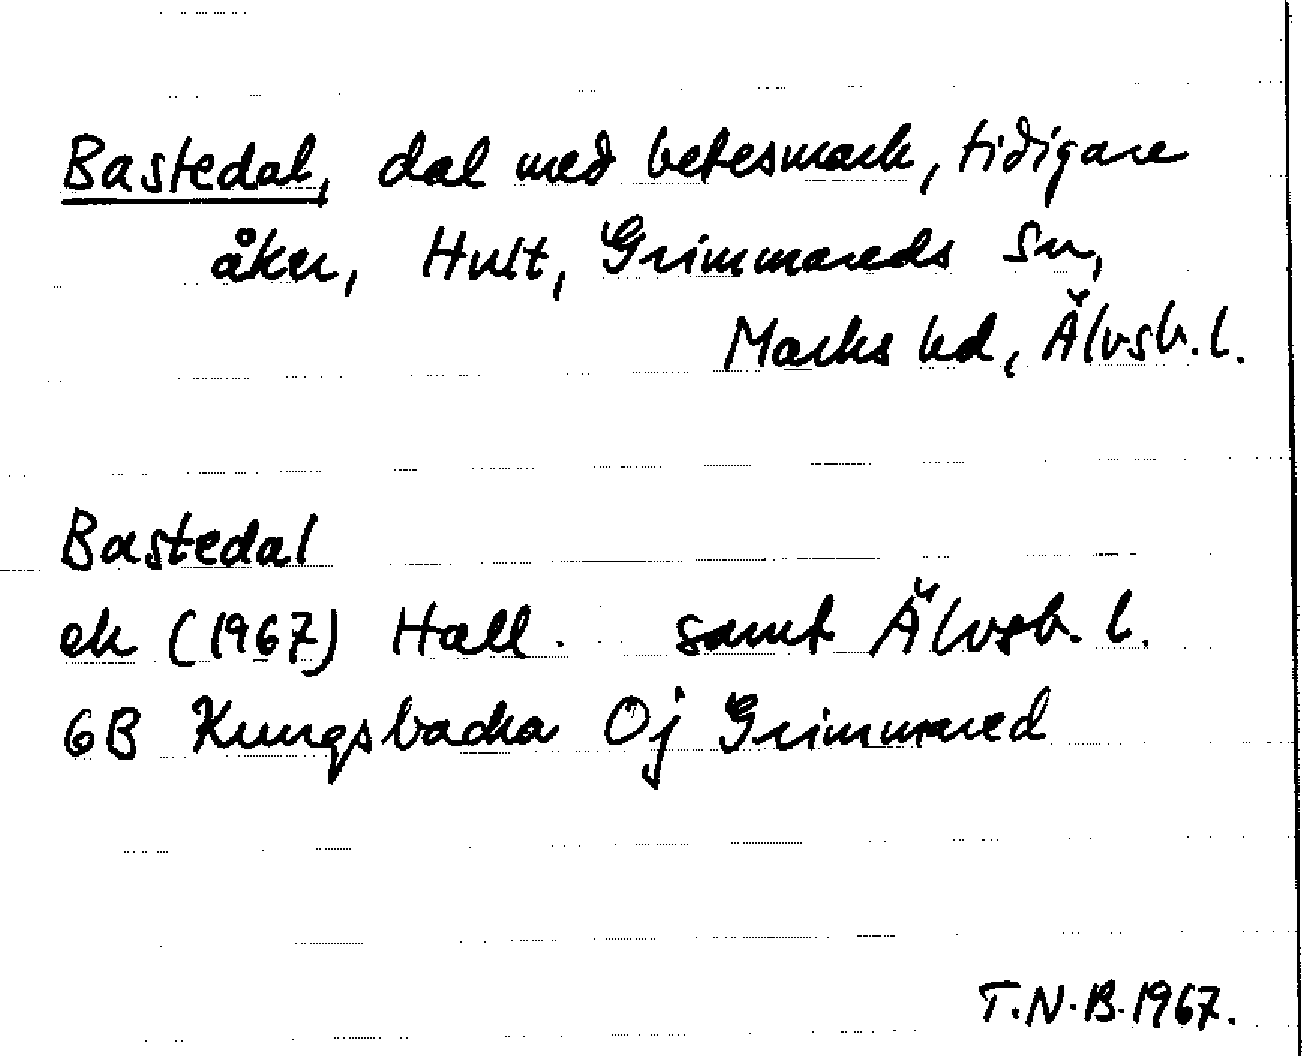 Bastedal, dal med betesmark, tidigare
åker, Hult, Grimmareds sn,
Marks hd, Älvsb. l.
Bastedal
ek (1967) Hall. samt Älvsb. l.
6B Kungsbacka Oj Grimmared
T.N.B. 1967.